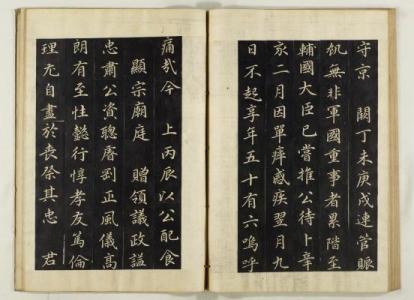 守京　闕丁未庚戌連管賑
飢無非軍國重事者累階至
輔國大臣已嘗推公待上辛
亥二月因單痺感疾翌月九
日不起享年五十有六嗚呼
痛哉今　上丙辰以公配食
顯宗廟庭　贈領議政諡
忠肅公資聰睿剛正風儀高
朗有至性懿行惇孝友篤倫
理尤自盡於喪祭其忠　君